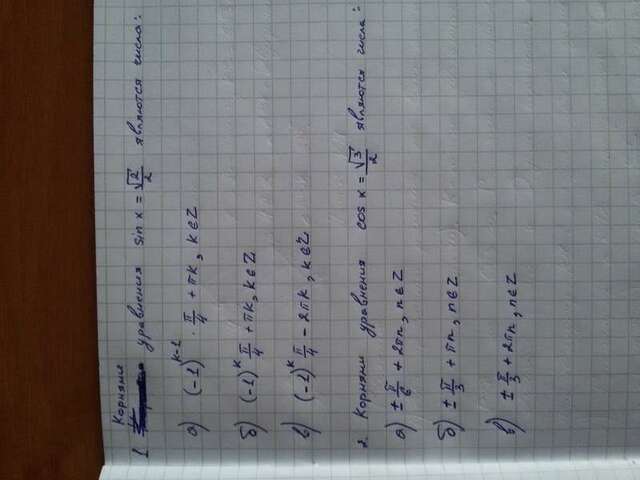 Корнями
1. уравнения sin x = √2/2 являются числа:
а) (-1)^(k-1) · π/4 + πk, k∈Z
б) (-1)^k π/4 + πk, k∈Z
в) (-1)^k π/4 - 2πk, k∈Z
2. Корнями уравнения cos x = √3/2 являются числа:
а) ± π/6 + 2πn, n∈Z
б) ± π/3 + πn, n∈Z
в) ± π/3 + 2πn, n∈Z